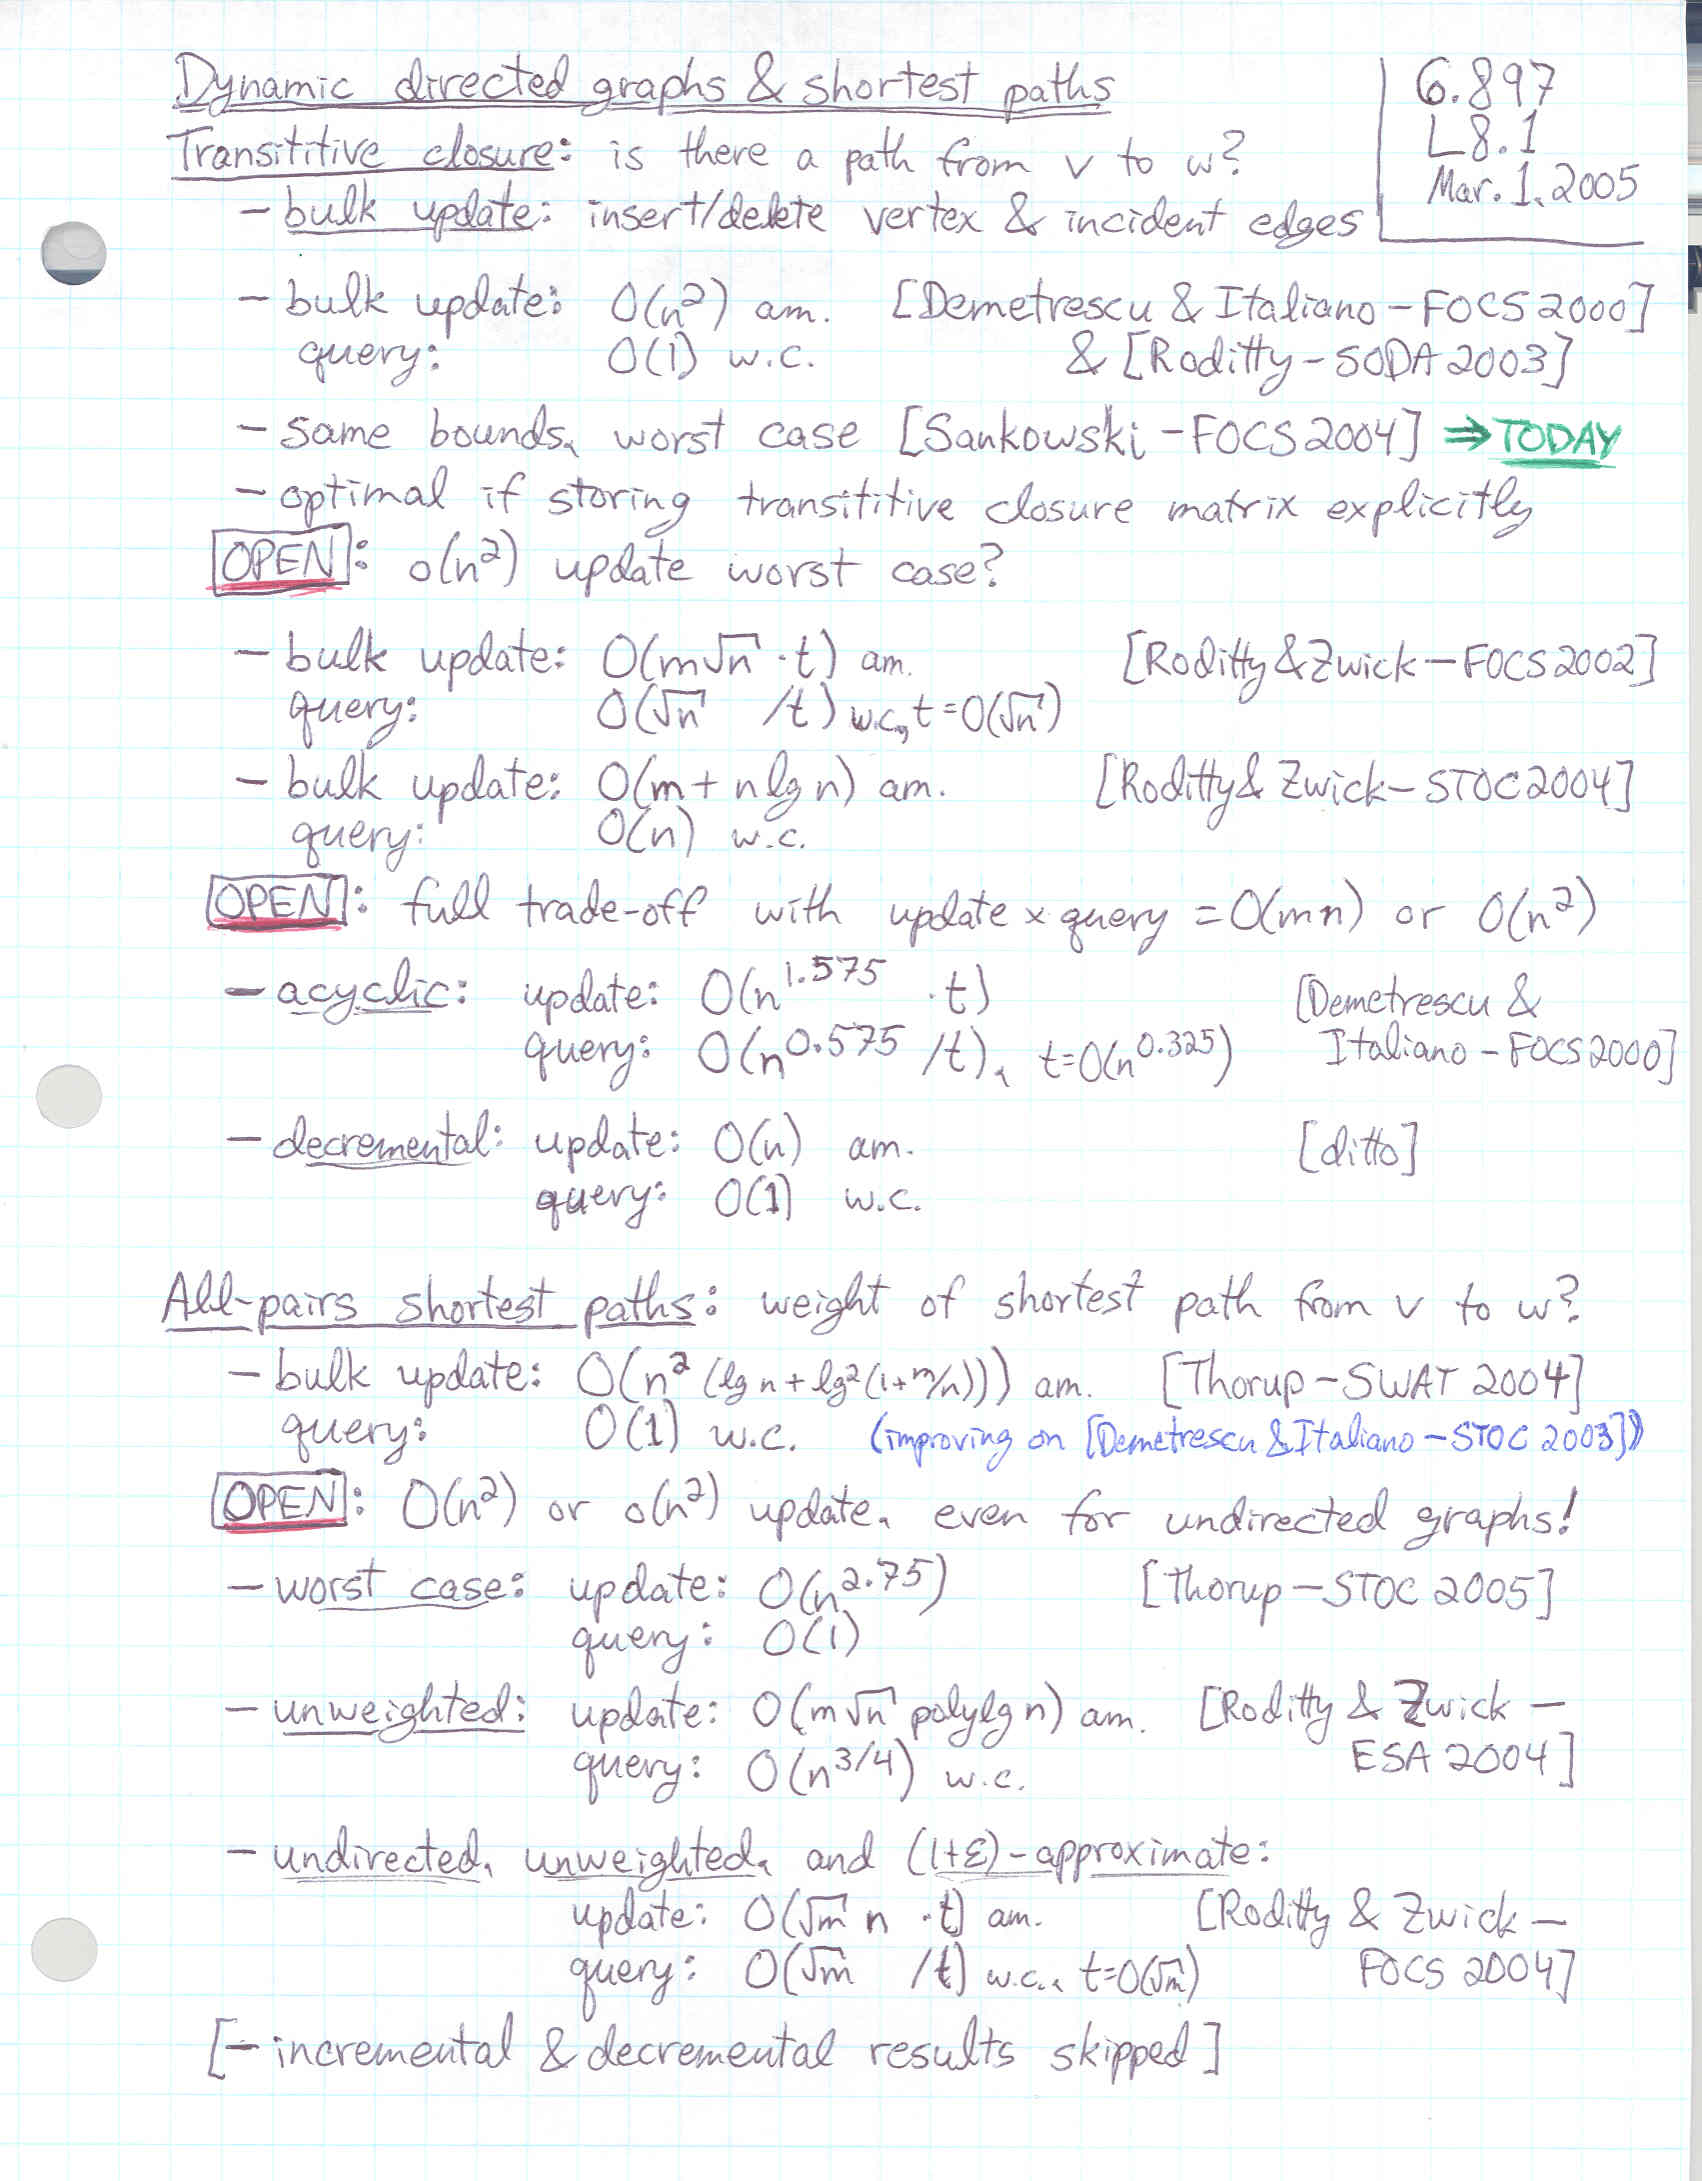 Dynamic directed graphs & shortest paths
6.897
L8.1
Mar. 1, 2005
Transititive closure: is there a path from v to w?
- bulk update: insert/delete vertex & incident edges
- bulk update: O(n²) am. [Demetrescu & Italiano - FOCS 2000]
query: O(1) w.c. & [Roditty - SODA 2003]
- same bounds, worst case [Sankowski - FOCS 2004] ⇒ TODAY
- optimal if storing transititive closure matrix explicitly
OPEN: o(n²) update worst case?
- bulk update: O(m√n · t) am. [Roditty & Zwick - FOCS 2002]
query: O(√n /t) w.c., t=O(√n)
- bulk update: O(m + n lg n) am. [Roditty & Zwick - STOC 2004]
query: O(n) w.c.
OPEN: full trade-off with update × query = O(mn) or O(n²)
- acyclic: update: O(n^1.575 · t) [Demetrescu &
query: O(n^0.575 /t), t=O(n^0.325) Italiano - FOCS 2000]
- decremental: update: O(n) am. [ditto]
query: O(1) w.c.
All-pairs shortest paths: weight of shortest path from v to w?
- bulk update: O(n² (lg n + lg²(1+m/n))) am. [Thorup - SWAT 2004]
query: O(1) w.c. (improving on [Demetrescu & Italiano - STOC 2003])
OPEN: O(n²) or o(n²) update, even for undirected graphs!
- worst case: update: O(n^2.75) [Thorup - STOC 2005]
query: O(1)
- unweighted: update: O(m√n polylg n) am. [Roditty & Zwick -
query: O(n^3/4) w.c. ESA 2004]
- undirected, unweighted, and (1+ε)-approximate:
update: O(√m n · t) am. [Roditty & Zwick -
query: O(√m /t) w.c., t=O(√m) FOCS 2004]
[- incremental & decremental results skipped]